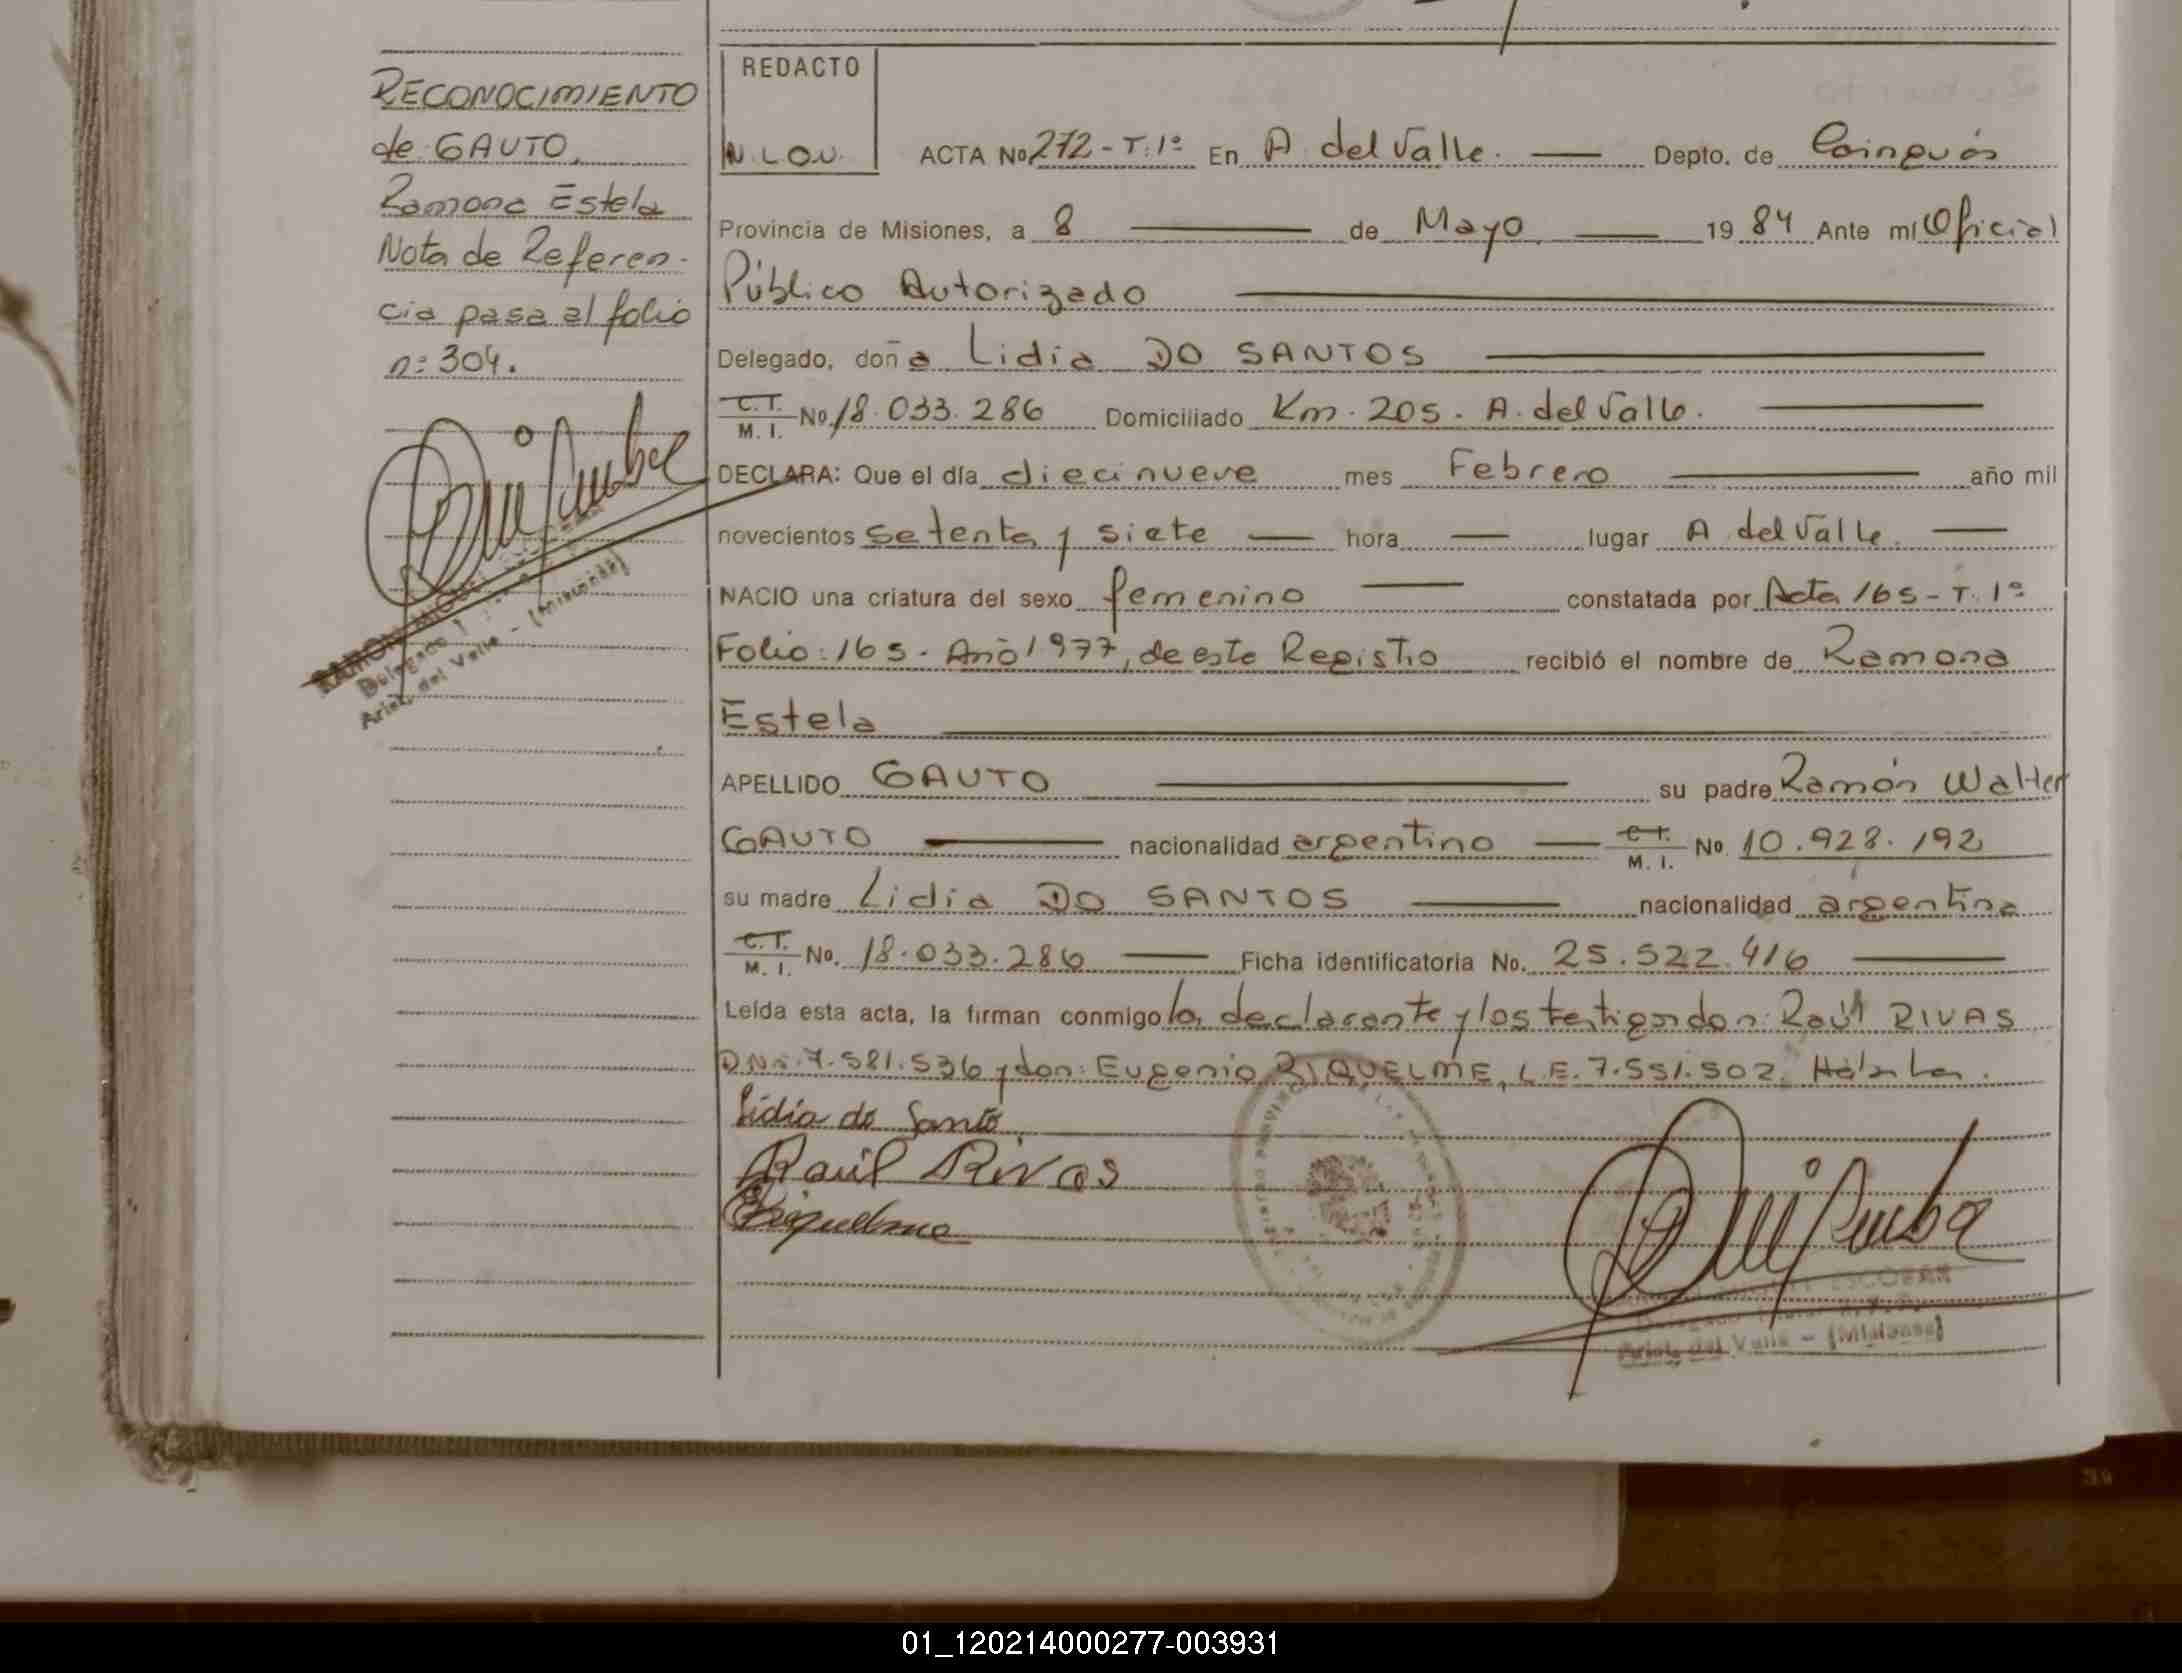 RECONOCIMIENTO
de GAUTO,
Ramona Estela
Nota de Referen-
cia pasa al folio
n: 304.
Delegado
Arist. del Valle - (Misiones)
REDACTO
N.L.O.U.
ACTA No 272 - T: 1º En A. del Valle. Depto. de Cainguás
Provincia de Misiones, a 8 de Mayo 1984 Ante mí Oficial
Público Autorizado
Delegado, doña Lidia DO SANTOS
C.T. M. I. No. 18.033.286 Domiciliado Km. 205. A. del Valle.
DECLARA: Que el día diecinueve mes Febrero año mil
novecientos setenta y siete hora lugar A. del Valle.
NACIO una criatura del sexo femenino constatada por Acta 165 - T. 1º
Folio: 165. Año 1977, de este Registro recibió el nombre de Ramona
Estela
APELLIDO GAUTO su padre Ramón Walter
GAUTO nacionalidad argentino C.T. M. I. No 10.928.192
su madre Lidia DO SANTOS nacionalidad argentina
C.T. M. I. No. 18.033.286 Ficha identificatoria No. 25.522.416
Leída esta acta, la firman conmigo la declarante y los testigos don: Raúl RIVAS
DNI: 7.581.536 y don: Eugenio RIQUELME, L.E. 7.551.502.
Lidia do Santo
Raúl Rivas
ERiquelme
ESCOBAR
Arist. del Valle - (Misiones)
01_120214000277-003931